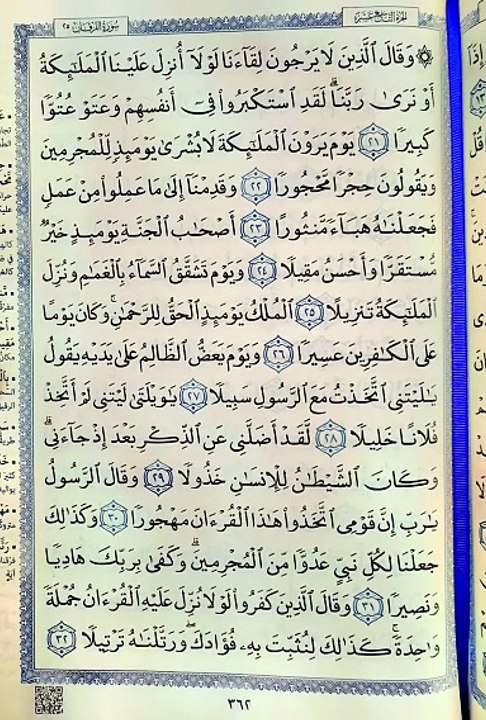 سورة الفرقان ٢٥
الجزء التاسع عشر
۞ وَقَالَ ٱلَّذِينَ لَا يَرْجُونَ لِقَآءَنَا لَوْلَآ أُنزِلَ عَلَيْنَا ٱلْمَلَٰٓئِكَةُ
أَوْ نَرَىٰ رَبَّنَا ۗ لَقَدِ ٱسْتَكْبَرُوا۟ فِىٓ أَنفُسِهِمْ وَعَتَوْ عُتُوًّا
كَبِيرًا ٢١ يَوْمَ يَرَوْنَ ٱلْمَلَٰٓئِكَةَ لَا بُشْرَىٰ يَوْمَئِذٍ لِّلْمُجْرِمِينَ
وَيَقُولُونَ حِجْرًا مَّحْجُورًا ٢٢ وَقَدِمْنَآ إِلَىٰ مَا عَمِلُوا۟ مِنْ عَمَلٍ
فَجَعَلْنَٰهُ هَبَآءً مَّنثُورًا ٢٣ أَصْحَٰبُ ٱلْجَنَّةِ يَوْمَئِذٍ خَيْرٌ
مُّسْتَقَرًّا وَأَحْسَنُ مَقِيلًا ٢٤ وَيَوْمَ تَشَقَّقُ ٱلسَّمَآءُ بِٱلْغَمَٰمِ وَنُزِّلَ
ٱلْمَلَٰٓئِكَةُ تَنزِيلًا ٢٥ ٱلْمُلْكُ يَوْمَئِذٍ ٱلْحَقُّ لِلرَّحْمَٰنِ ۚ وَكَانَ يَوْمًا
عَلَى ٱلْكَٰفِرِينَ عَسِيرًا ٢٦ وَيَوْمَ يَعَضُّ ٱلظَّالِمُ عَلَىٰ يَدَيْهِ يَقُولُ
يَٰلَيْتَنِى ٱتَّخَذْتُ مَعَ ٱلرَّسُولِ سَبِيلًا ٢٧ يَٰوَيْلَتَىٰ لَيْتَنِى لَمْ أَتَّخِذْ
فُلَانًا خَلِيلًا ٢٨ لَّقَدْ أَضَلَّنِى عَنِ ٱلذِّكْرِ بَعْدَ إِذْ جَآءَنِى ۗ
وَكَانَ ٱلشَّيْطَٰنُ لِلْإِنسَٰنِ خَذُولًا ٢٩ وَقَالَ ٱلرَّسُولُ
يَٰرَبِّ إِنَّ قَوْمِى ٱتَّخَذُوا۟ هَٰذَا ٱلْقُرْءَانَ مَهْجُورًا ٣٠ وَكَذَٰلِكَ
جَعَلْنَا لِكُلِّ نَبِىٍّ عَدُوًّا مِّنَ ٱلْمُجْرِمِينَ ۗ وَكَفَىٰ بِرَبِّكَ هَادِيًا
وَنَصِيرًا ٣١ وَقَالَ ٱلَّذِينَ كَفَرُوا۟ لَوْلَا نُزِّلَ عَلَيْهِ ٱلْقُرْءَانُ جُمْلَةً
وَٰحِدَةً ۚ كَذَٰلِكَ لِنُثَبِّتَ بِهِۦ فُؤَادَكَ ۖ وَرَتَّلْنَٰهُ تَرْتِيلًا ٣٢
٣٦٢